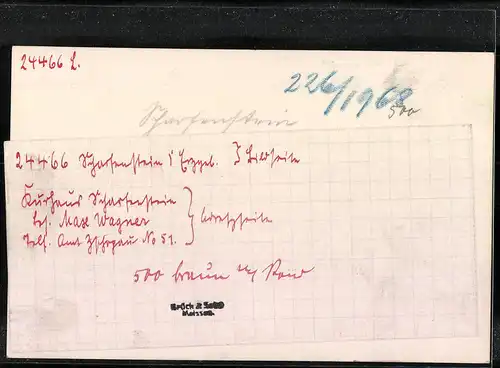 24466 L.
226/1968
500
Scharfenstein
24466 Scharfenstein i/ Erzgeb. } Bildseite
Kurhaus Scharfenstein
Bes. Max Wagner
Telef. Amt Zschopau No 51.
} Adreßseite
500 braun m/ Rand
Brück & Sohn
Meissen.